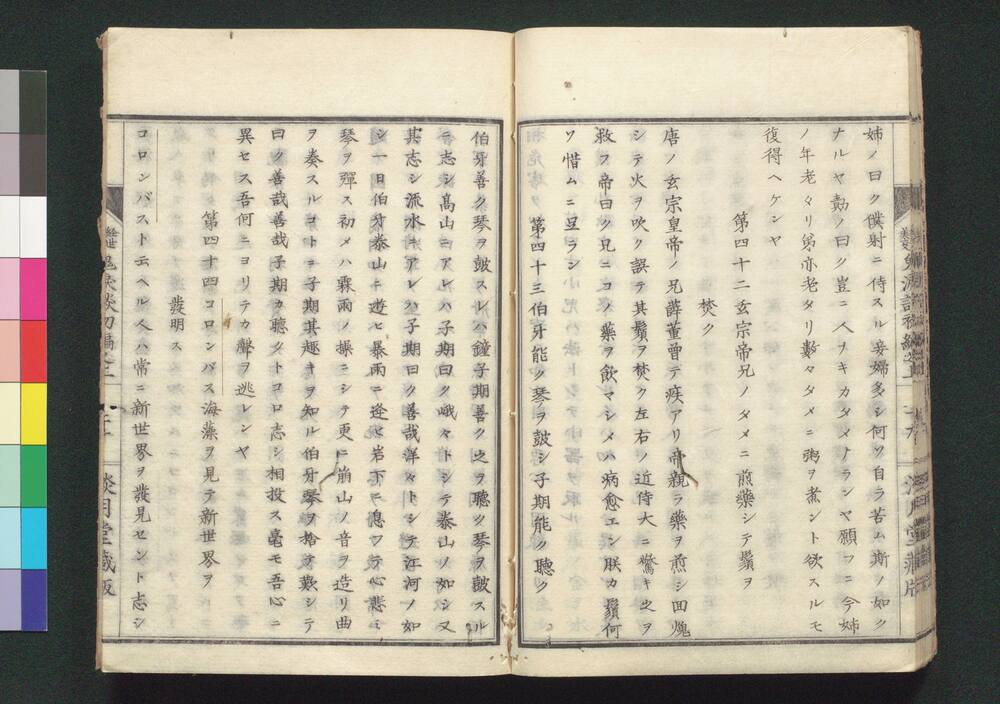 姉ノ曰ク僕射ニ侍スル妾婦多シ何ソ自ラ苦ム斯ノ如ク
ナルヤ勣ノ曰ク豈ニ人ナキカタメナランヤ願フニ今姉
ノ年老タリ第亦老タリ數々タメニ粥ヲ煮ント欲スルモ
復得ヘケンヤ
第四十二玄宗帝兄ノタメニ煎藥シテ鬚ヲ
焚ク
唐ノ玄宗皇帝ノ兄薛董曾テ疾アリ帝親ラ藥ヲ煎シ回颷
シテ火ヲ吹ク誤テ其鬚ヲ焚ク左右ノ近侍大ニ驚キ之ヲ
救フ帝曰ク兄ニコノ藥ヲ飲マシメハ病愈エン朕カ鬚何
ソ惜ムニ足ラン
第四十三伯牙能ク琴ヲ鼓シ子期能ク聽ク
伯牙善ク琴ヲ鼓スレハ鐘子期善ク之ヲ聽ク琴ヲ鼓スル
ニ志シ高山ニアレハ子期曰ク峨々トシテ泰山ノ如シ又
其志シ流水ニアレハ子期曰ク善哉洋々トシテ江河ノ如
シ一日伯牙泰山ニ遊ヒ暴雨ニ逢ヒ岩下ニ憩フテ心悲ミ
琴ヲ彈ス初メハ霖雨ノ操ニシテ更ニ崩山ノ音ヲ造リ曲
ヲ奏スルコトニ子期其趣キヲ知ル伯牙琴ヲ捨テ歎シテ
曰ク善哉善哉子期カ聽クトコロ志シ相投ス毫モ吾心ニ
異セス吾何ニヨリテカ聲ヲ逃レンヤ
第四十四コロンバス海藻ヲ見テ新世界ヲ
發明ス
コロンバスト云ヘル人ハ常ニ新世界ヲ發見セント志シ